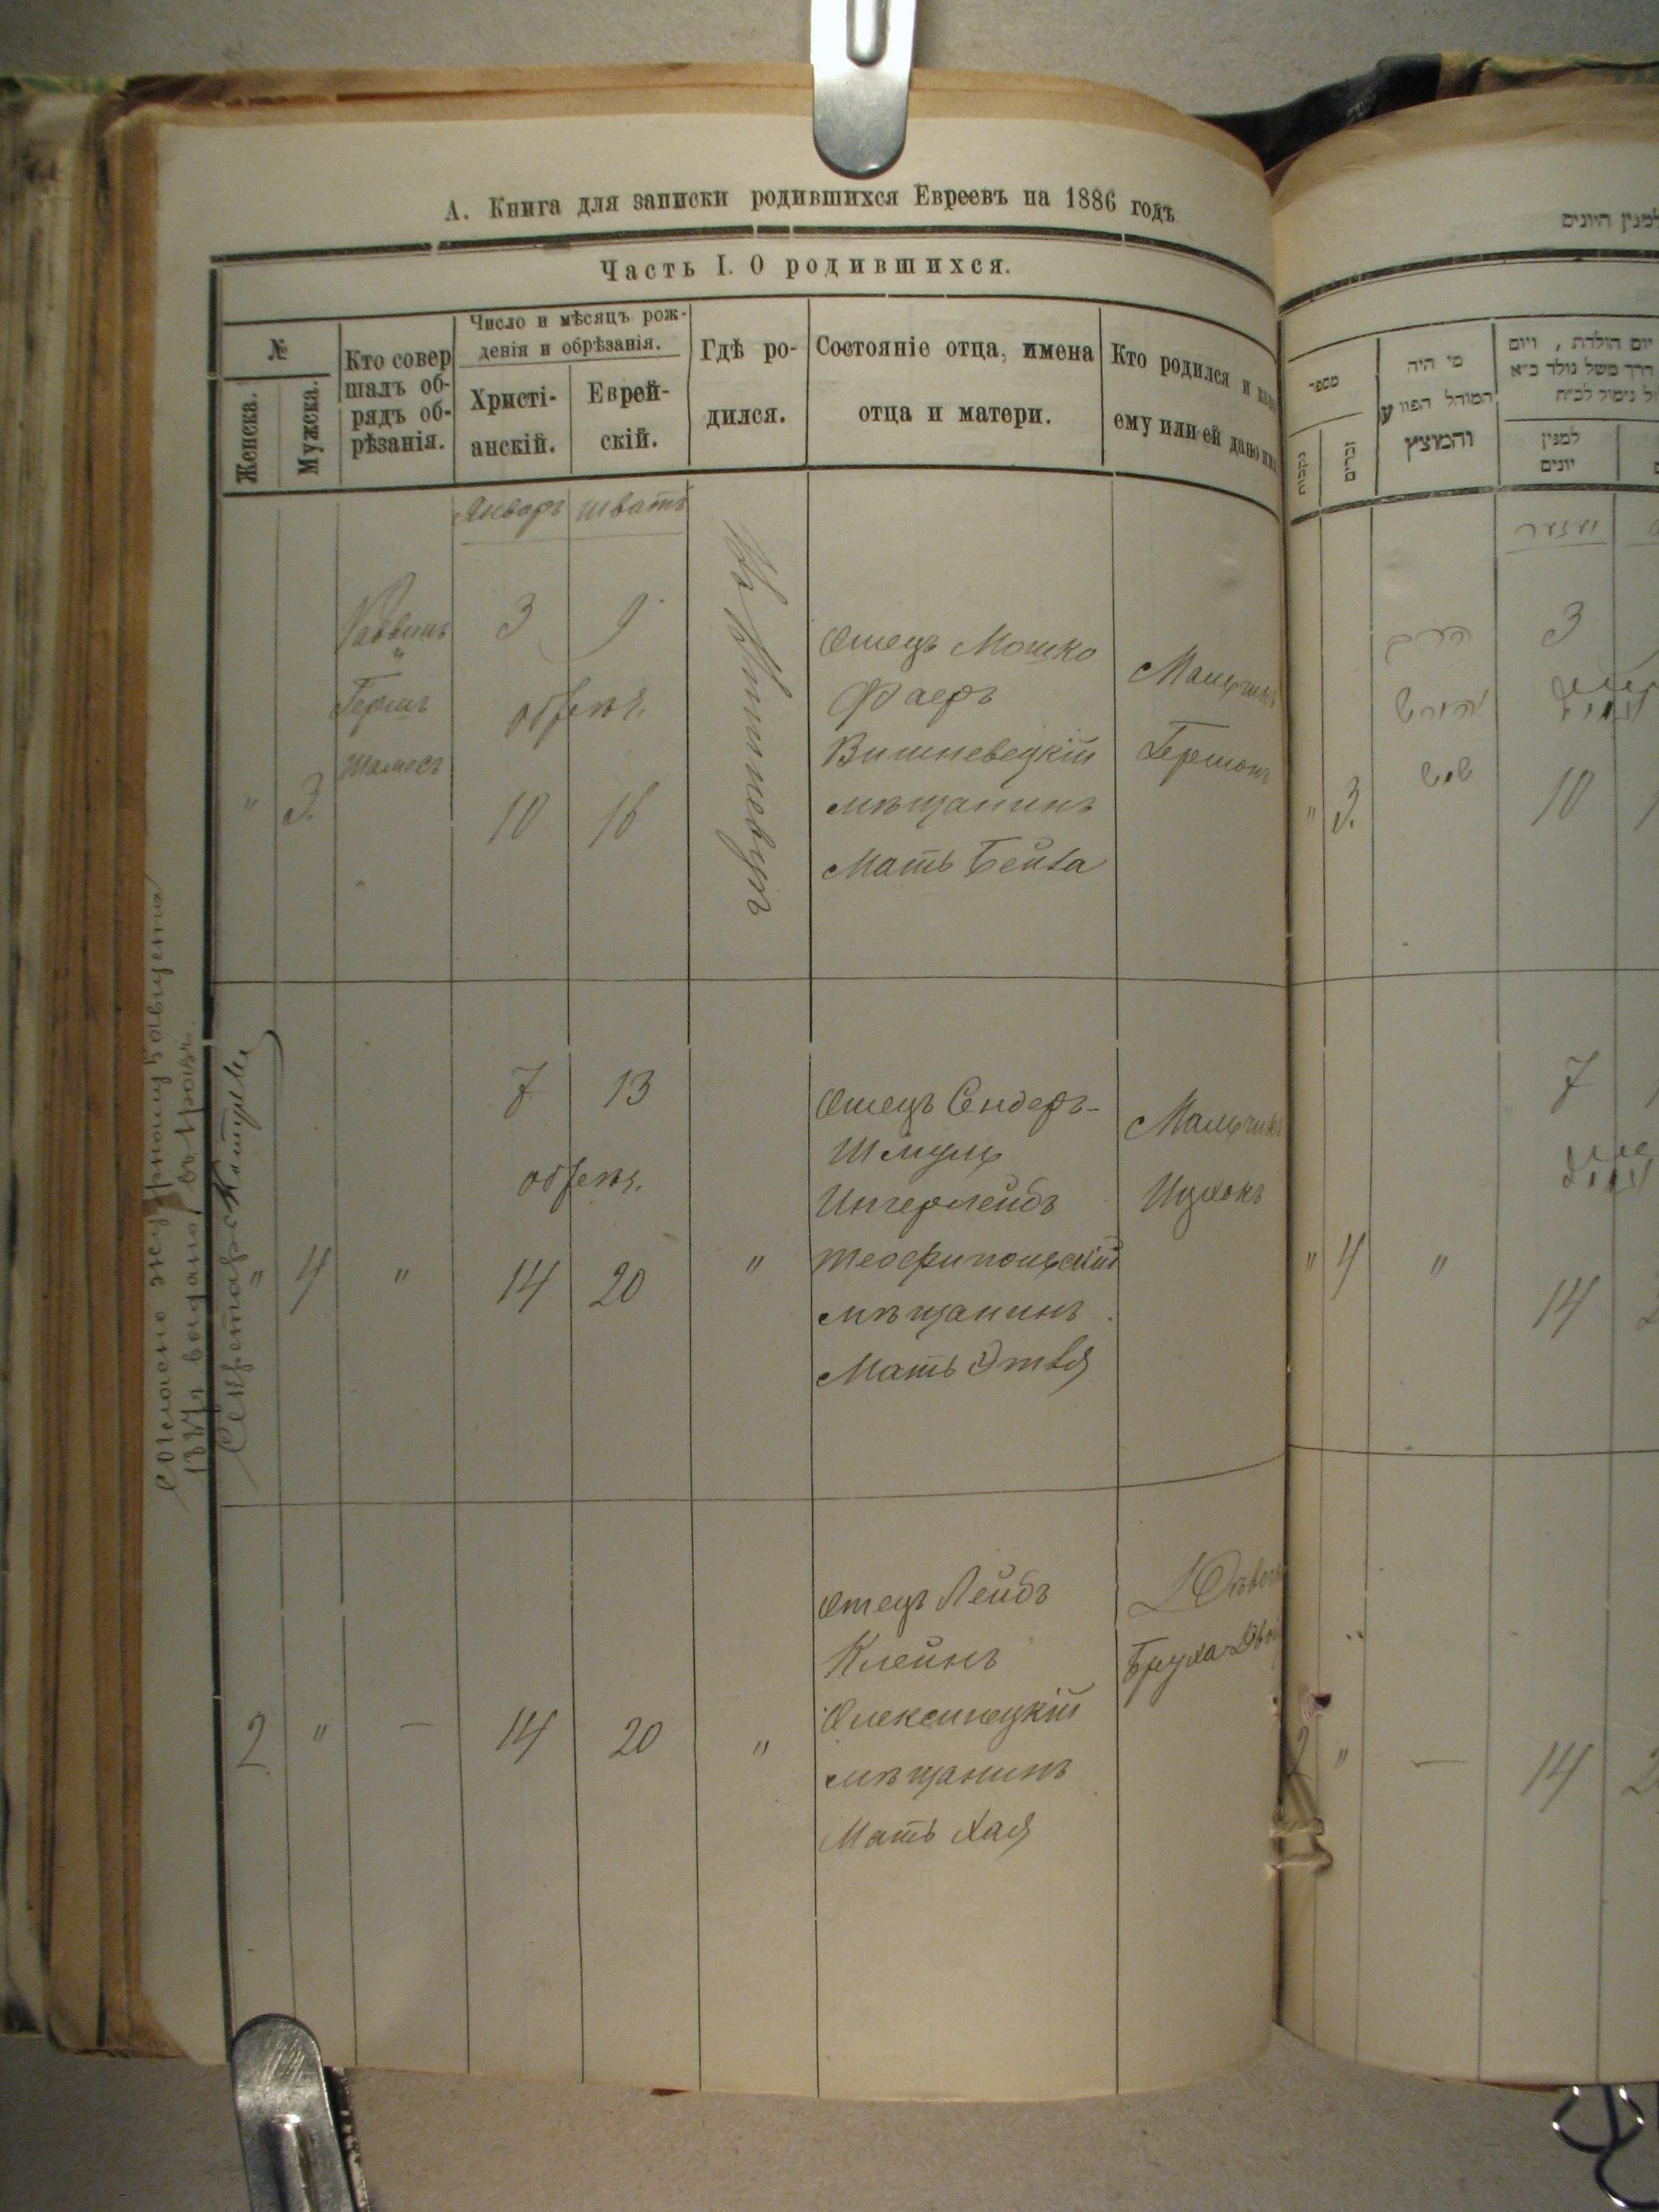 А. Книга для записки родившихся Евреевъ на 1886 годъ
Часть I. О родившихся.
№
Женска.
Мужска.
Кто совер
шалъ об-
рядъ об-
рѣзанія.
Число и мѣсяцъ рож-
денія и обрѣзанія.
Христі-
анскій.
Еврей-
скій.
Гдѣ ро-
дился.
Состояніе отца, имена
отца и матери.
Кто родился и
ему или ей дано
Январь Шватъ
" 3.
Раввинъ
"
Гершъ
Шамесъ
3 9
обрѣз.
10 16
Отецъ Мошко
Фаеръ
Вишневецкій
мѣщанинъ
Мать Бейла
Мальчикъ
Гершонъ
" 4 "
7 13
обрѣз.
14 20
"
Отецъ Сендеръ-
Шмуль
Ингерлейбъ
Теофипольскій
мѣщанинъ
Мать Этля
Мальчикъ
Ицхокъ
2 " — 14 20 "
Отецъ Лейбъ
Клейнъ
Олексинецкій
мѣщанинъ
Мать Хая
Бруха
1887 г. выдано
Секретарь
למנין היונים
מספר
נקבות
זכרים
מי היה
המוהל הפורע
והמוצץ
יום הולדת , ויום
למנין
יונים
יאנואר
" 3.
הרב
הירש
שמש
3
10
" 4 "
7
14
2 " — 14